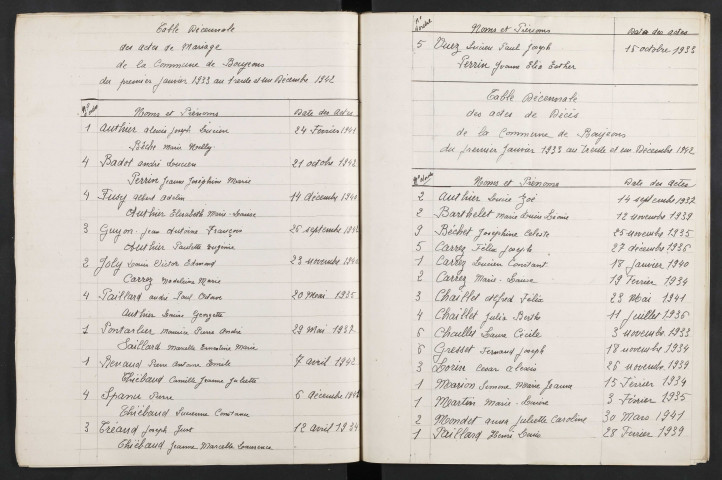 Table Décennale
des actes de Mariage
de la Commune de Boujeons
du premier janvier 1933 au trente et un Décembre 1942
Noms et Prénoms Date des Actes
1 Authier alexis Joseph Lucien 24 Fevrier 1941
Marie Noelly
4 Badot andré Lucien 21 octobre 1942
Perrin Jeanne Joséphine Marie
4 albert 14 décembre 1940
Authier Elisabeth Marie Louise
3 Guyon Jean Antoine François 26 septembre 1942
Authier Paulette Eugénie
2 Joly Louis Victor Edmond 23 novembre 1940
Carrez Madeleine Marie
4 Paillard andré Paul Octave 20 Mai 1935
Authier Louise Georgette
1 Pontarlier Maurice Pierre André 29 Mai 1937
Paillard Marcelle Ernestine Marie
1 Renaud Pierre Antoine Emile 7 avril 1942
Thiébaud Camille Jeanne Juliette
4 Spaner Pierre 6 décembre
Thiébaud Suzanne Constance
3 Tréand Joseph Just 12 avril 1934
Thiébaud Jeanne Marcelle Laurence
N° d'ordre Noms et Prénoms Date des actes
5 Vuez Lucien Paul Joseph 15 octobre 1933
Perrin Jeanne Elia Esther
Table Décennale
des actes de Décès
de la Commune de Boujeons
du premier janvier 1933 au trente et un Décembre 1942
N° d'ordre Noms et Prénoms Date des Actes
2 Authier Louise Zoé 14 septembre 1937
2 Barthelet Marie Louise Léonie 12 novembre 1939
9 Béchet Joséphine Celeste 25 novembre 1935
5 Carrez Félix Joseph 27 décembre 1936
1 Carrez Lucien Constant 18 Janvier 1940
2 Carrez Marie-Louise 19 Février 1934
3 Chaillet Alfred Félix 23 Mai 1941
4 Chaillet Julie Berthe 11 Juillet 1936
6 Chaillet Laure Cécile 3 novembre 1933
6 Gresset Fernand Joseph 18 novembre 1934
3 Lorin Cesar alexis 26 novembre 1939
1 Marion Simone Marie Jeanne 15 Février 1934
1 Martin Marie-Louise 3 Février 1935
2 Mondet anna Juliette Caroline 30 Mars 1941
1 Paillard Henri Louis 28 Fevrier 1939